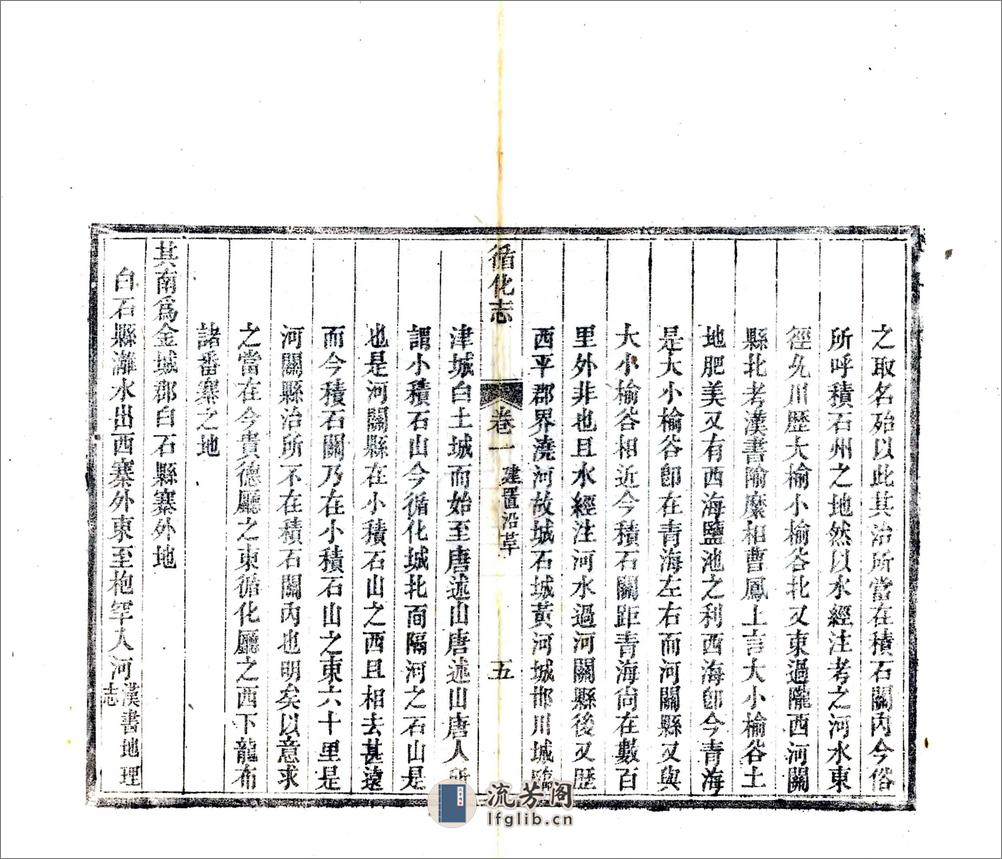 之取名殆以此其治所當在積石關內今俗
所呼積石州之地然以水經注考之河水東
徑允川歷大榆小榆谷北又東過隴西河關
縣北考漢書隃麋相曹鳳上言大小榆谷土
地肥美又有西海鹽池之利西海卽今青海
是大小榆谷卽在青海左右而河關縣又與
大小榆谷相近今積石關距青海尙在數百
里外非也且水經注河水過河關縣後又歷
西平郡界澆河故城石城黃河城邯川城臨
循化志 卷一 建置沿革 五
津城白土城而始至唐述山唐述山唐人所
謂小積石山今循化城北面隔河之石山是
也是河關縣在小積石山之西且相去甚遠
而今積石關乃在小積石山之東六十里是
河關縣治所不在積石關內也明矣以意求
之當在今貴德廳之東循化廳之西下龍布
諸番寨之地
其南爲金城郡白石縣寨外地
白石縣灕水出西寨外東至枹罕入河漢書地理
志
流芳阁
lfglib.cn